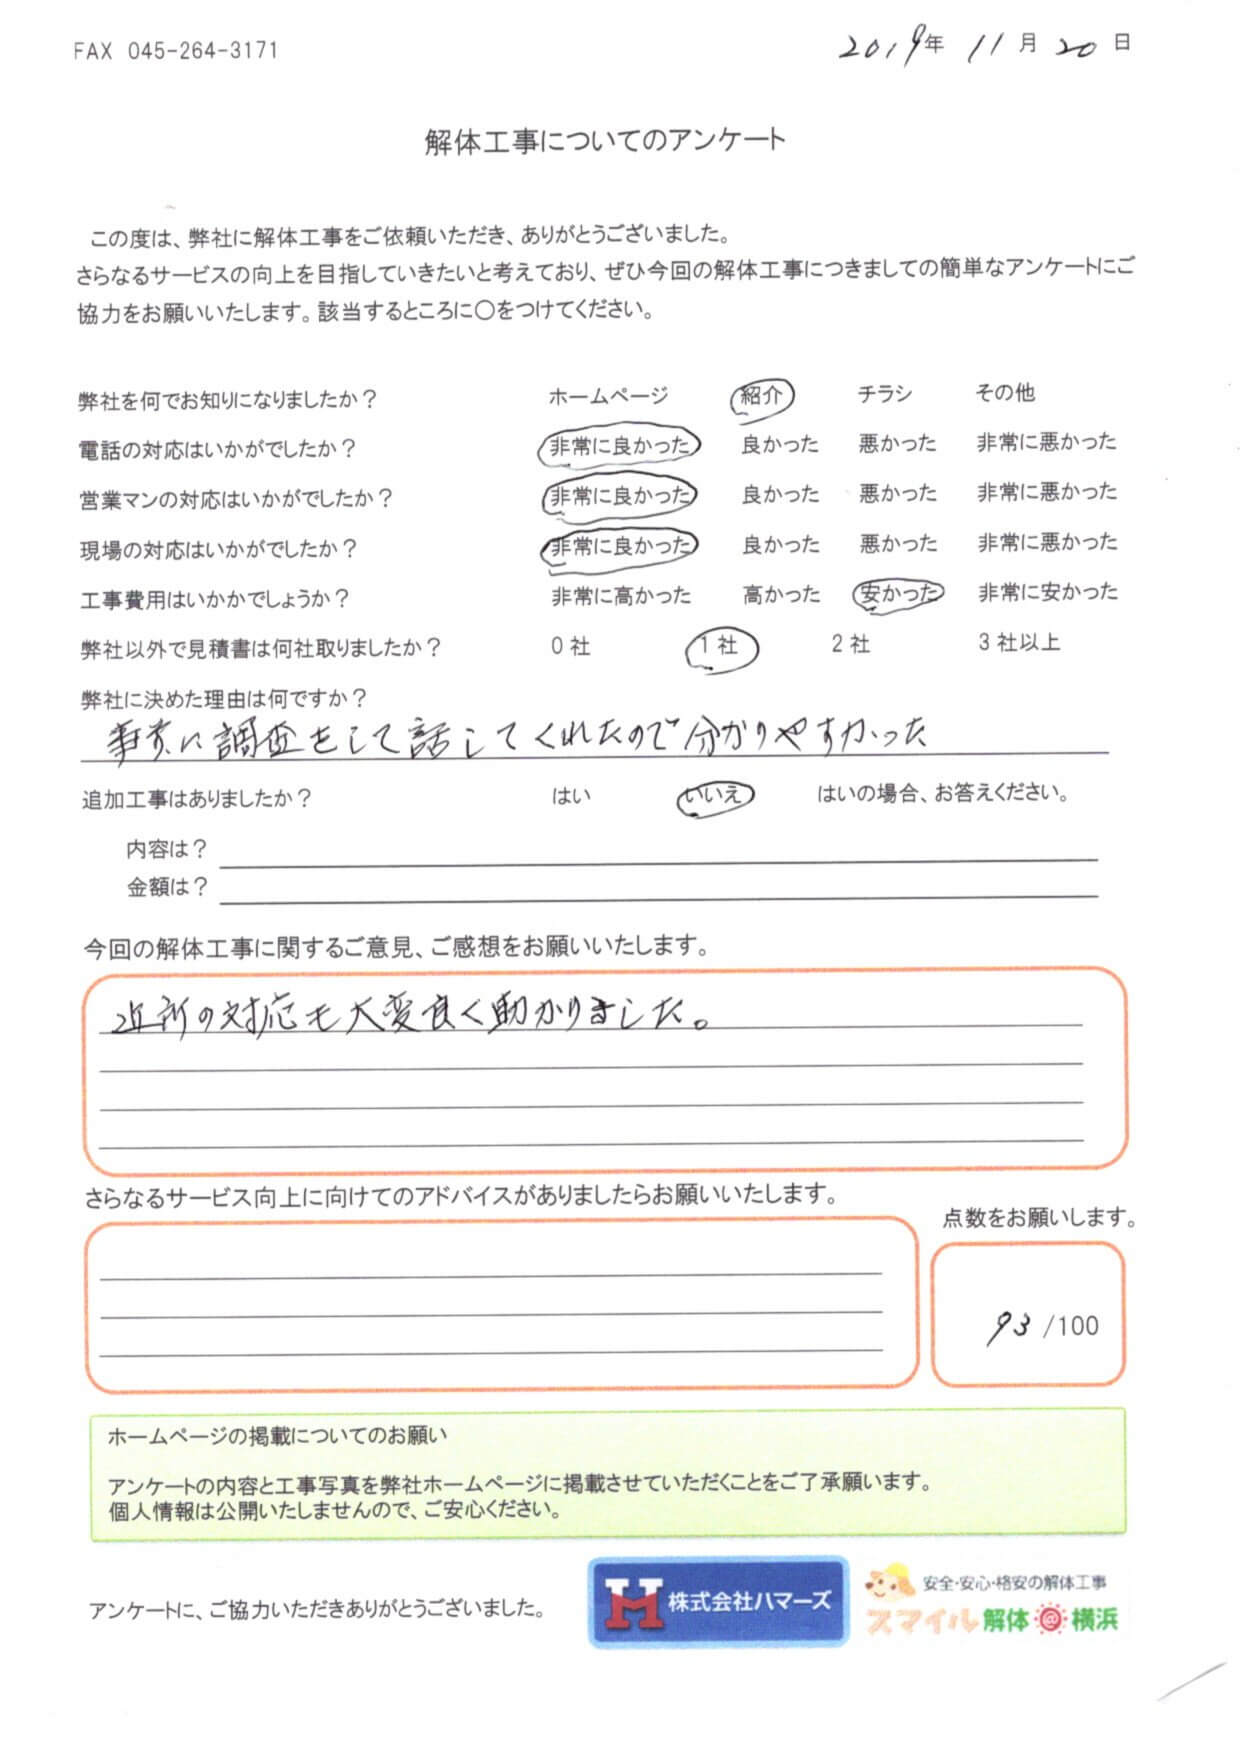 FAX 045-264-3171
2019年 11月 20日
解体工事についてのアンケート
この度は、弊社に解体工事をご依頼いただき、ありがとうございました。
さらなるサービスの向上を目指していきたいと考えており、ぜひ今回の解体工事につきましての簡単なアンケートにご
協力をお願いいたします。該当するところに○をつけてください。
弊社を何でお知りになりましたか? ホームページ 紹介 チラシ その他
電話の対応はいかがでしたか? 非常に良かった 良かった 悪かった 非常に悪かった
営業マンの対応はいかがでしたか? 非常に良かった 良かった 悪かった 非常に悪かった
現場の対応はいかがでしたか? 非常に良かった 良かった 悪かった 非常に悪かった
工事費用はいかかでしょうか? 非常に高かった 高かった 安かった 非常に安かった
弊社以外で見積書は何社取りましたか? 0社 1社 2社 3社以上
弊社に決めた理由は何ですか?
に調査をして話してくれたので分かりやすかった
追加工事はありましたか? はい いいえ はいの場合、お答えください。
内容は?
金額は?
今回の解体工事に関するご意見、ご感想をお願いいたします。
近所の対応も大変良く助かりました。
さらなるサービス向上に向けてのアドバイスがありましたらお願いいたします。
点数をお願いします。
93/100
ホームページの掲載についてのお願い
アンケートの内容と工事写真を弊社ホームページに掲載させていただくことをご了承願います。
個人情報は公開いたしませんので、ご安心ください。
アンケートに、ご協力いただきありがとうございました。
H 株式会社ハマーズ
安全・安心・格安の解体工事
スマイル解体@横浜